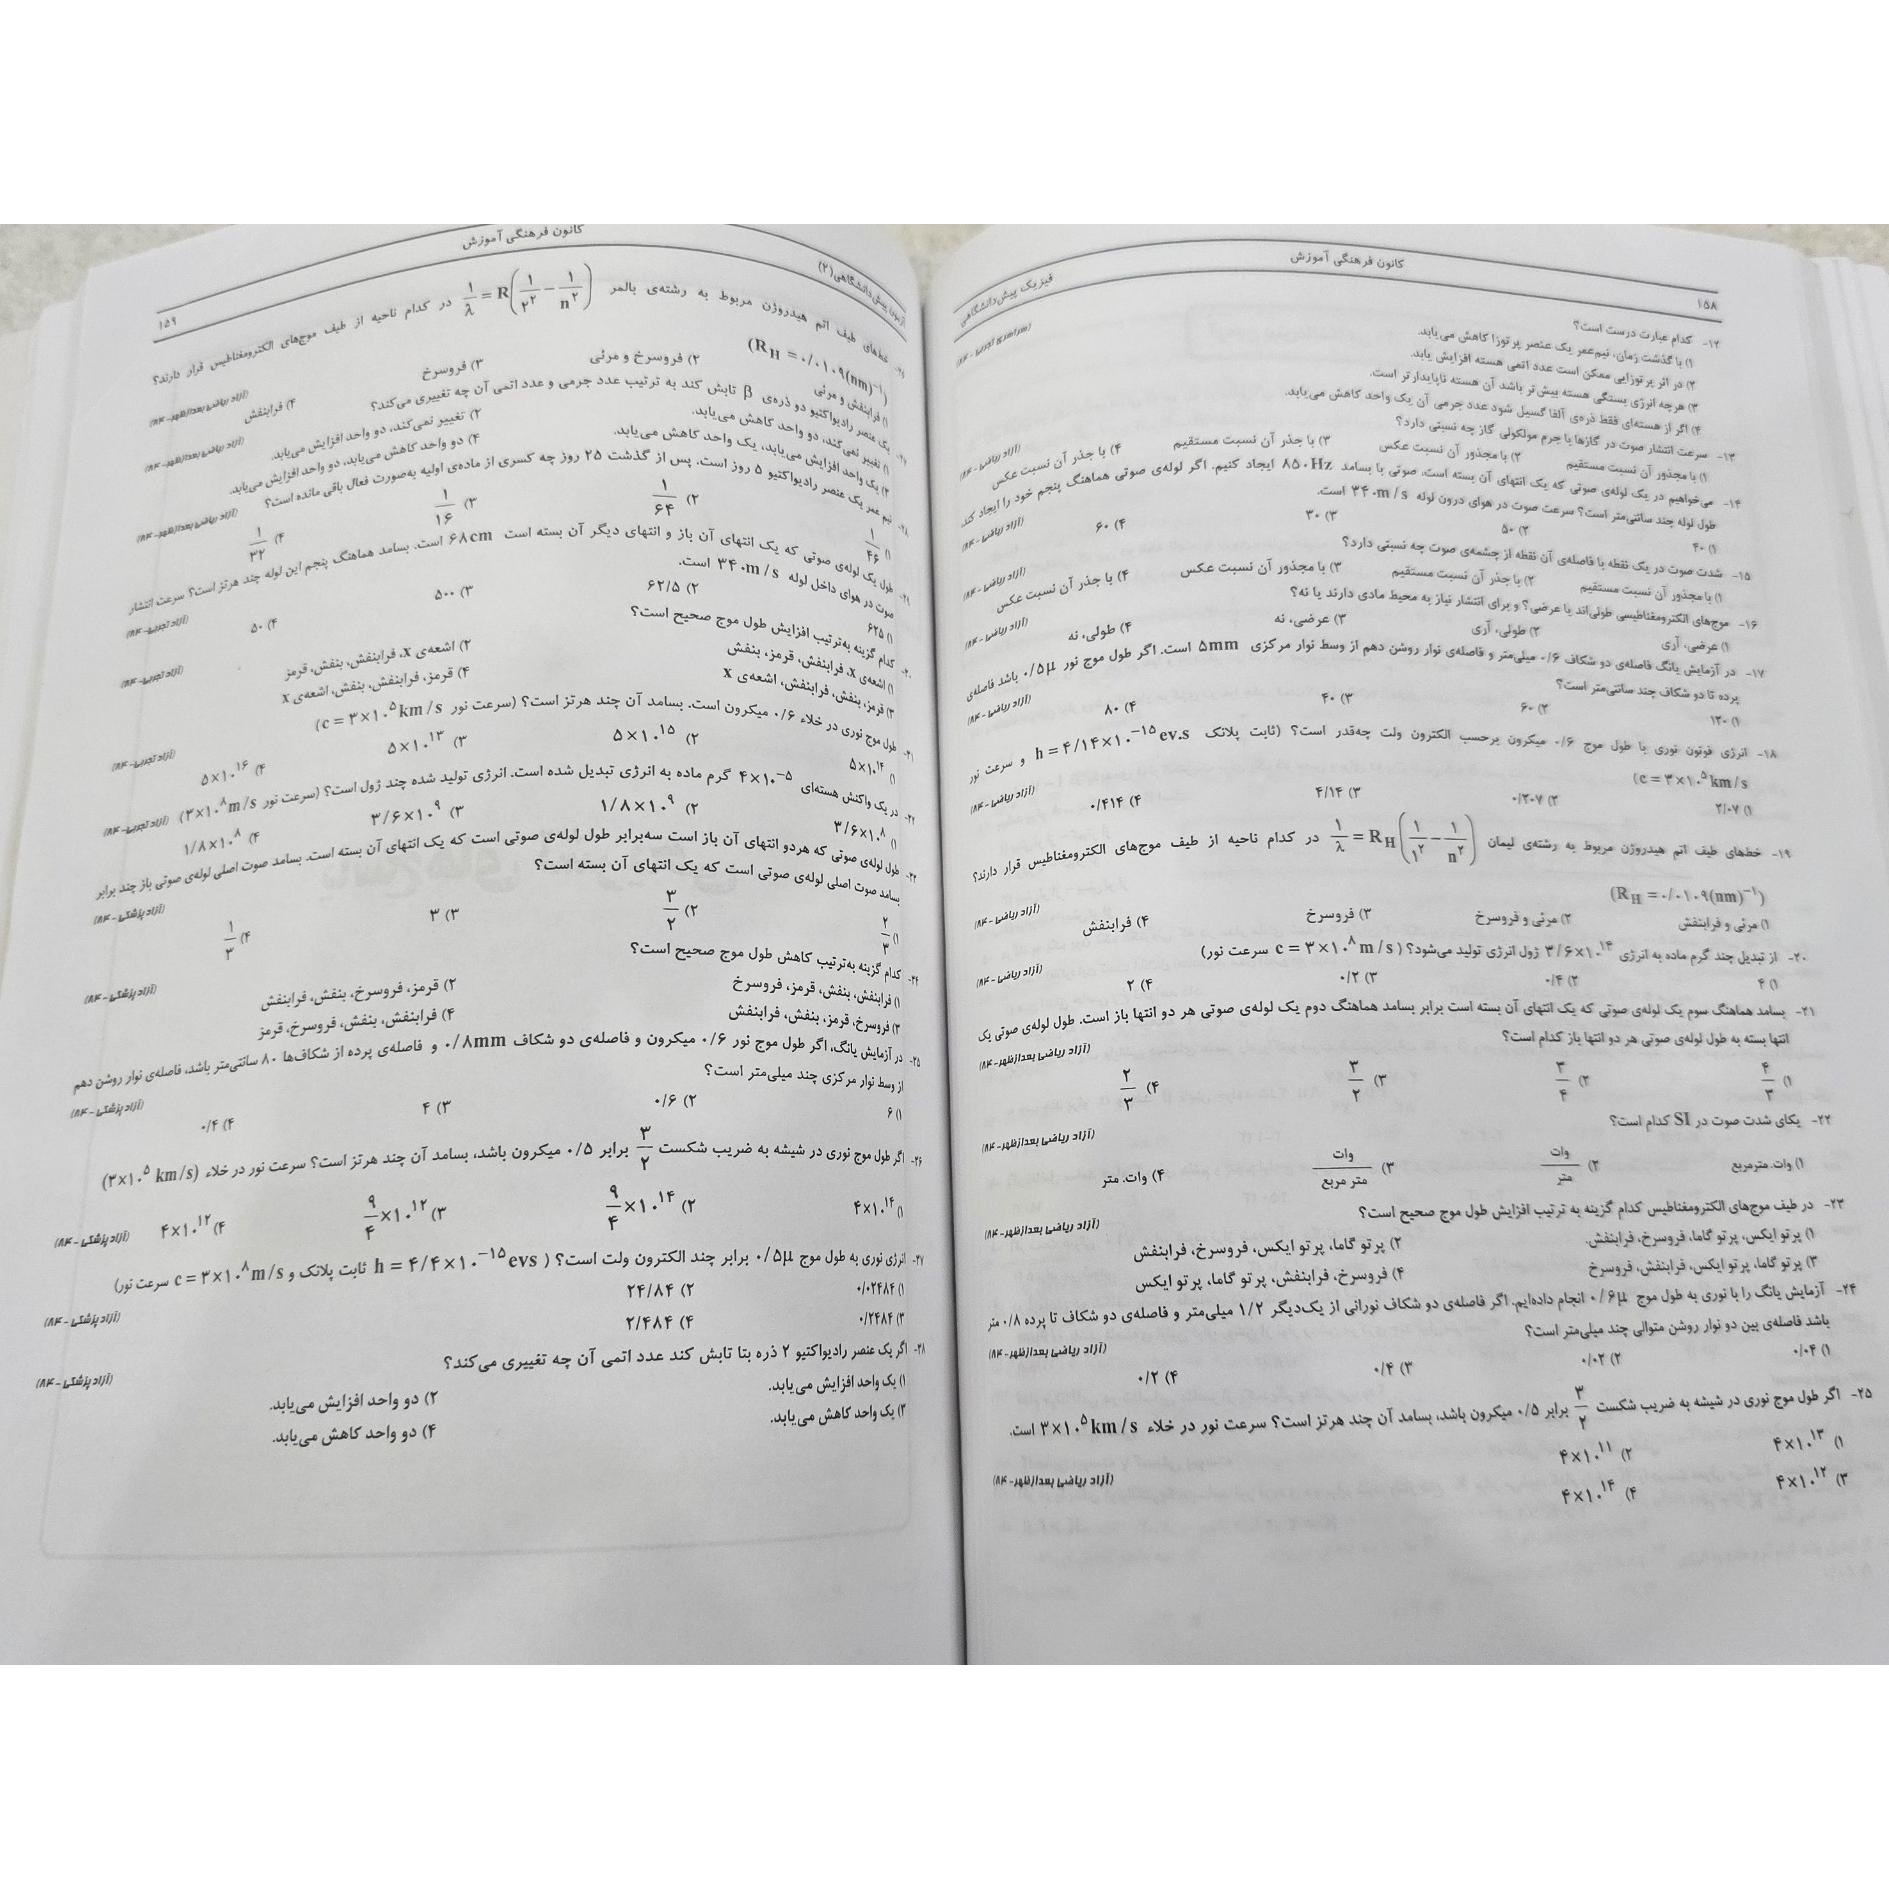 ۱۵۸
کانون فرهنگی آموزش
فیزیک پیش‌دانشگاهی
۱۲- کدام عبارت درست است؟
۱) با گذشت زمان، نیم‌عمر یک عنصر پرتوزا کاهش می‌یابد.
۲) در اثر پرتوزایی ممکن است عدد اتمی هسته افزایش یابد.
۳) هرچه انرژی بستگی هسته بیش‌تر باشد آن هسته ناپایدارتر است.
۴) اگر از هسته‌ای فقط ذره‌ی آلفا گسیل شود عدد جرمی آن یک واحد کاهش می‌یابد.
۱۳- سرعت انتشار صوت در گازها با جرم مولکولی گاز چه نسبتی دارد؟ (آزاد ریاضی - ۸۴)
۱) با مجذور آن نسبت مستقیم ۲) با مجذور آن نسبت عکس ۳) با جذر آن نسبت مستقیم ۴) با جذر آن نسبت عکس
۱۴- می‌خواهیم در یک لوله‌ی صوتی که یک انتهای آن بسته است، صوتی با بسامد ۸۵۰Hz ایجاد کنیم. اگر لوله‌ی صوتی هماهنگ پنجم خود را ایجاد کند،
طول لوله چند سانتی‌متر است؟ سرعت صوت در هوای درون لوله ۳۴۰m/s است. (آزاد ریاضی - ۸۴)
۱) ۴۰ ۲) ۵۰ ۳) ۳۰ ۴) ۶۰
۱۵- شدت صوت در یک نقطه با فاصله‌ی آن نقطه از چشمه‌ی صوت چه نسبتی دارد؟ (آزاد ریاضی - ۸۴)
۱) با مجذور آن نسبت مستقیم ۲) با جذر آن نسبت مستقیم ۳) با مجذور آن نسبت عکس ۴) با جذر آن نسبت عکس
۱۶- موج‌های الکترومغناطیسی طولی‌اند یا عرضی؟ و برای انتشار نیاز به محیط مادی دارند یا نه؟ (آزاد ریاضی - ۸۴)
۱) عرضی، آری ۲) طولی، آری ۳) عرضی، نه ۴) طولی، نه
۱۷- در آزمایش یانگ فاصله‌ی دو شکاف ۰/۶ میلی‌متر و فاصله‌ی نوار روشن دهم از وسط نوار مرکزی ۵mm است. اگر طول موج نور ۰/۵μ باشد فاصله‌ی
پرده تا دو شکاف چند سانتی‌متر است؟ (آزاد ریاضی - ۸۴)
۱) ۱۲۰ ۲) ۶۰ ۳) ۴۰ ۴) ۸۰
۱۸- انرژی فوتون نوری با طول موج ۰/۶ میکرون برحسب الکترون ولت چه‌قدر است؟ (ثابت پلانک h = ۴/۱۴×۱۰⁻¹⁵ ev.s و سرعت نور
c = ۳×۱۰⁵ km/s) (آزاد ریاضی - ۸۴)
۱) ۲/۰۷ ۲) ۰/۲۰۷ ۳) ۴/۱۴ ۴) ۰/۴۱۴
۱۹- خط‌های طیف اتم هیدروژن مربوط به رشته‌ی لیمان ۱/λ = R_H(۱/۱² − ۱/n²) در کدام ناحیه از طیف موج‌های الکترومغناطیس قرار دارند؟
(R_H = ۰/۰۱۰۹(nm)⁻¹) (آزاد ریاضی - ۸۴)
۱) مرئی و فرابنفش ۲) مرئی و فروسرخ ۳) فروسرخ ۴) فرابنفش
۲۰- از تبدیل چند گرم ماده به انرژی ۳/۶×۱۰¹⁴ ژول انرژی تولید می‌شود؟ (c = ۳×۱۰⁸ m/s سرعت نور) (آزاد ریاضی - ۸۴)
۱) ۴ ۲) ۰/۴ ۳) ۰/۲ ۴) ۲
۲۱- بسامد هماهنگ سوم یک لوله‌ی صوتی که یک انتهای آن بسته است برابر بسامد هماهنگ دوم یک لوله‌ی صوتی هر دو انتها باز است. طول لوله‌ی صوتی یک
انتها بسته به طول لوله‌ی صوتی هر دو انتها باز کدام است؟ (آزاد ریاضی بعدازظهر - ۸۴)
۱) ۴/۳ ۲) ۳/۴ ۳) ۳/۲ ۴) ۲/۳
۲۲- یکای شدت صوت در SI کدام است؟ (آزاد ریاضی بعدازظهر - ۸۴)
۱) وات. مترمربع ۲) وات/متر ۳) وات/متر مربع ۴) وات. متر
۲۳- در طیف موج‌های الکترومغناطیس کدام گزینه به ترتیب افزایش طول موج صحیح است؟ (آزاد ریاضی بعدازظهر - ۸۴)
۱) پرتو ایکس، پرتو گاما، فروسرخ، فرابنفش. ۲) پرتو گاما، پرتو ایکس، فروسرخ، فرابنفش
۳) پرتو گاما، پرتو ایکس، فرابنفش، فروسرخ ۴) فروسرخ، فرابنفش، پرتو گاما، پرتو ایکس
۲۴- آزمایش یانگ را با نوری به طول موج ۰/۶μ انجام داده‌ایم. اگر فاصله‌ی دو شکاف نورانی از یک‌دیگر ۱/۲ میلی‌متر و فاصله‌ی دو شکاف تا پرده ۰/۸ متر
باشد فاصله‌ی بین دو نوار روشن متوالی چند میلی‌متر است؟ (آزاد ریاضی بعدازظهر - ۸۴)
۱) ۰/۰۴ ۲) ۰/۰۲ ۳) ۰/۴ ۴) ۰/۲
۲۵- اگر طول موج نوری در شیشه به ضریب شکست ۳/۲ برابر ۰/۵ میکرون باشد، بسامد آن چند هرتز است؟ سرعت نور در خلاء ۳×۱۰⁵ km/s است.
۱) ۴×۱۰¹³ ۲) ۴×۱۰¹¹
۳) ۴×۱۰¹² ۴) ۴×۱۰¹⁴ (آزاد ریاضی بعدازظهر - ۸۴)
آزمون پیش‌دانشگاهی (۲)
کانون فرهنگی آموزش
۱۵۹
خط‌های طیف اتم هیدروژن مربوط به رشته‌ی بالمر ۱/λ = R(۱/۲² − ۱/n²) در کدام ناحیه از طیف موج‌های الکترومغناطیس قرار دارند؟
(R_H = ۰/۰۱۰۹(nm)⁻¹) (آزاد ریاضی بعدازظهر - ۸۴)
۱) فرابنفش و مرئی ۲) فروسرخ و مرئی ۳) فروسرخ ۴) فرابنفش
یک عنصر رادیواکتیو دو ذره‌ی β تابش کند به ترتیب عدد جرمی و عدد اتمی آن چه تغییری می‌کند؟ (آزاد ریاضی بعدازظهر - ۸۴)
۱) تغییر نمی‌کند، دو واحد کاهش می‌یابد. ۲) تغییر نمی‌کند، دو واحد افزایش می‌یابد.
۳) یک واحد افزایش می‌یابد، یک واحد کاهش می‌یابد. ۴) دو واحد کاهش می‌یابد، دو واحد افزایش می‌یابد.
نیم عمر یک عنصر رادیواکتیو ۵ روز است. پس از گذشت ۲۵ روز چه کسری از ماده‌ی اولیه به‌صورت فعال باقی مانده است؟ (آزاد ریاضی بعدازظهر - ۸۴)
۱) ۱/۴۶ ۲) ۱/۶۴ ۳) ۱/۱۶ ۴) ۱/۳۲
طول یک لوله‌ی صوتی که یک انتهای آن باز و انتهای دیگر آن بسته است ۶۸cm است. بسامد هماهنگ پنجم این لوله چند هرتز است؟ سرعت انتشار
صوت در هوای داخل لوله ۳۴۰m/s است. (آزاد تجربی - ۸۴)
۱) ۶۲۵ ۲) ۶۲/۵ ۳) ۵۰۰ ۴) ۵۰
کدام گزینه به‌ترتیب افزایش طول موج صحیح است؟ (آزاد تجربی - ۸۴)
۱) اشعه‌ی x، فرابنفش، قرمز، بنفش ۲) اشعه‌ی x، فرابنفش، بنفش، قرمز
۳) قرمز، بنفش، فرابنفش، اشعه‌ی x ۴) قرمز، فرابنفش، بنفش، اشعه‌ی x
طول موج نوری در خلاء ۰/۶ میکرون است. بسامد آن چند هرتز است؟ (سرعت نور c = ۳×۱۰⁵ km/s) (آزاد تجربی - ۸۴)
۱) ۵×۱۰¹⁴ ۲) ۵×۱۰¹⁵ ۳) ۵×۱۰¹³ ۴) ۵×۱۰¹⁶
در یک واکنش هسته‌ای ۴×۱۰⁻⁵ گرم ماده به انرژی تبدیل شده است. انرژی تولید شده چند ژول است؟ (سرعت نور ۳×۱۰⁸ m/s) (آزاد تجربی - ۸۴)
۱) ۳/۶×۱۰⁸ ۲) ۱/۸×۱۰⁹ ۳) ۳/۶×۱۰⁹ ۴) ۱/۸×۱۰⁸
طول لوله‌ی صوتی که هردو انتهای آن باز است سه‌برابر طول لوله‌ی صوتی است که یک انتهای آن بسته است. بسامد صوت اصلی لوله‌ی صوتی باز چند برابر
بسامد صوت اصلی لوله‌ی صوتی است که یک انتهای آن بسته است؟ (آزاد پزشکی - ۸۴)
۱) ۲/۳ ۲) ۳/۲ ۳) ۳ ۴) ۱/۳
۳۴- کدام گزینه به‌ترتیب کاهش طول موج صحیح است؟ (آزاد پزشکی - ۸۴)
۱) فرابنفش، بنفش، قرمز، فروسرخ ۲) قرمز، فروسرخ، بنفش، فرابنفش
۳) فروسرخ، قرمز، بنفش، فرابنفش ۴) فرابنفش، بنفش، فروسرخ، قرمز
۳۵- در آزمایش یانگ، اگر طول موج نور ۰/۶ میکرون و فاصله‌ی دو شکاف ۰/۸mm و فاصله‌ی پرده از شکاف‌ها ۸۰ سانتی‌متر باشد، فاصله‌ی نوار روشن دهم
از وسط نوار مرکزی چند میلی‌متر است؟ (آزاد پزشکی - ۸۴)
۱) ۶ ۲) ۰/۶ ۳) ۴ ۴) ۰/۴
۳۶- اگر طول موج نوری در شیشه به ضریب شکست ۳/۲ برابر ۰/۵ میکرون باشد، بسامد آن چند هرتز است؟ سرعت نور در خلاء (۳×۱۰⁵ km/s)
۱) ۴×۱۰¹⁴ ۲) ۹/۴×۱۰¹⁴ ۳) ۹/۴×۱۰¹² ۴) ۴×۱۰¹² (آزاد پزشکی - ۸۴)
۳۷- انرژی نوری به طول موج ۰/۵μ برابر چند الکترون ولت است؟ (h = ۴/۴×۱۰⁻¹⁵ evs ثابت پلانک و c = ۳×۱۰⁸ m/s سرعت نور)
۱) ۰/۰۲۴۸۴ ۲) ۲۴/۸۴
۳) ۰/۲۴۸۴ ۴) ۲/۴۸۴ (آزاد پزشکی - ۸۴)
۳۸- اگر یک عنصر رادیواکتیو ۲ ذره بتا تابش کند عدد اتمی آن چه تغییری می‌کند؟ (آزاد پزشکی - ۸۴)
۱) یک واحد افزایش می‌یابد. ۲) دو واحد افزایش می‌یابد.
۳) یک واحد کاهش می‌یابد. ۴) دو واحد کاهش می‌یابد.